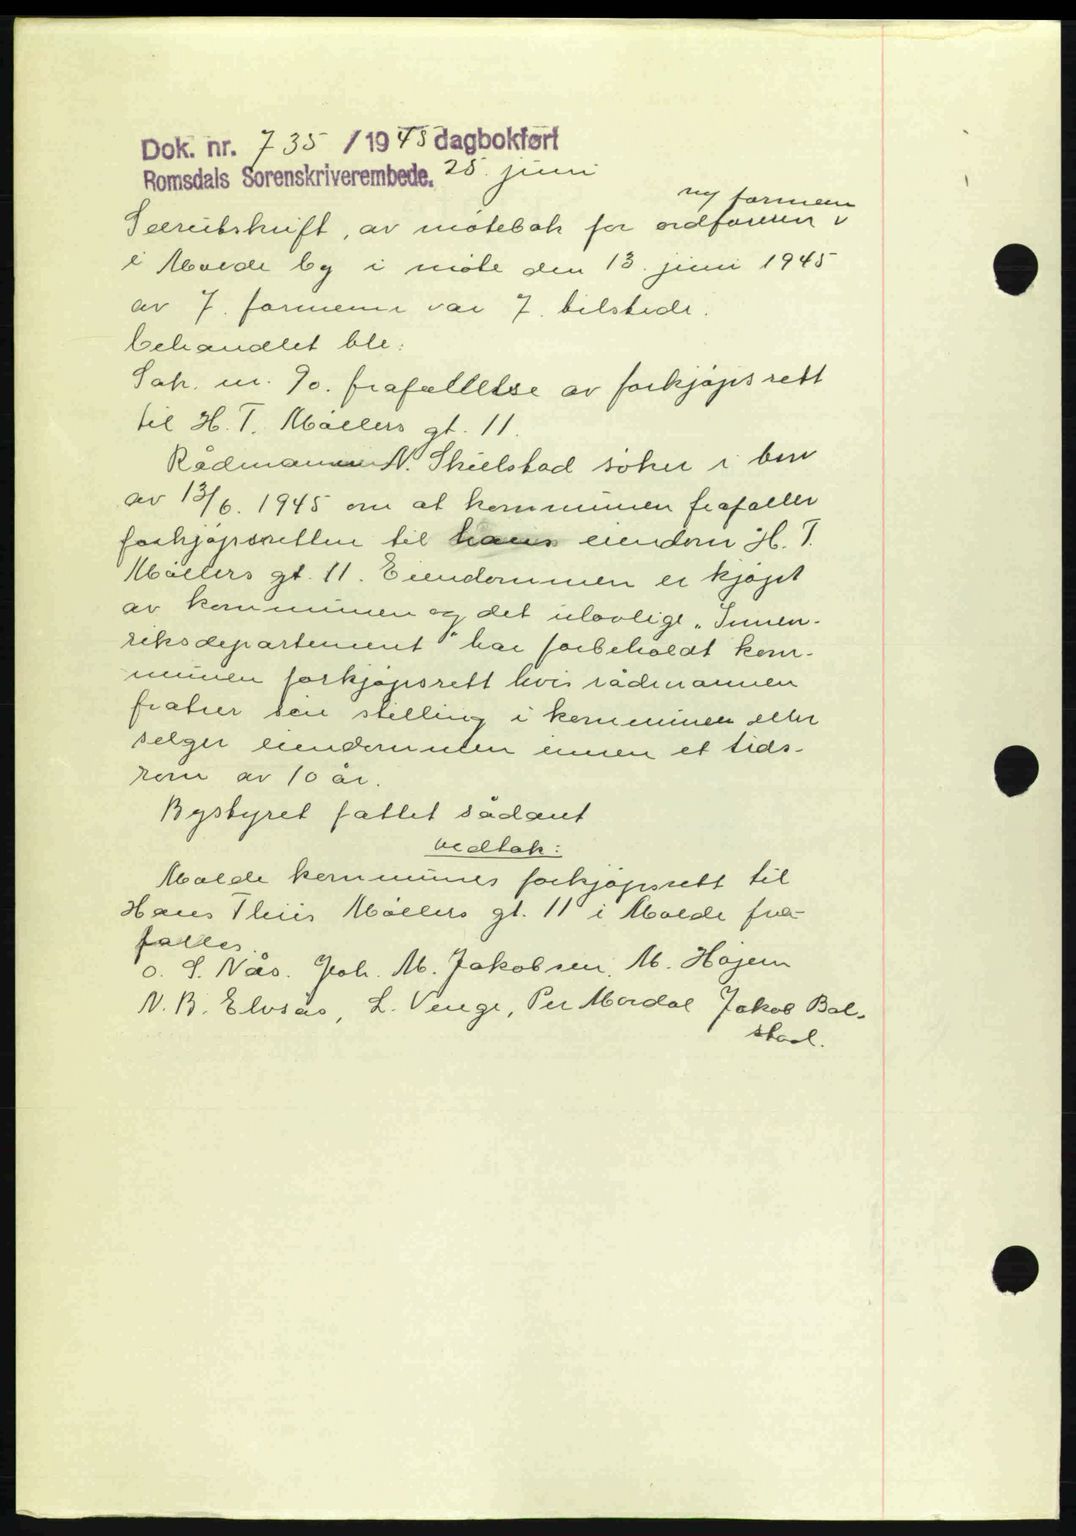 Dok. nr. 735 /1945 dagbokført
Romsdals Sorenskriverembede. 25. juni
og formenn
Særutskrift, av møtebok for ordføreren v
i Molde by i møte den 13. juni 1945
av 7. formenn var 7. tilstede.
behandlet ble:
Sak. nr. 90. frafallelse av forkjøpsrett
til H. T. Møllers gt. 11.
Rådmannen N. Skielstad søker i brev
av 13/6. 1945 om at kommunen frafaller
forkjøpsretten til hans eiendom H. T.
Møllers gt. 11. Eiendommen er kjøpt
av kommunen og det ulovlige „Innen-
riksdepartement" har forbeholdt kom-
munen forkjøpsrett hvis rådmannen
fratrer sin stilling i kommunen eller
selger eiendommen innen et tids-
rom av 10 år.
Bystyret fattet sådant
vedtak:
Molde kommunes forkjøpsrett til
Hans Thiis Møllers gt. 11 i Molde fra-
falles.
O. S. Nås. Joh. M. Jakobsen. M. Højem
N. B. Elvsås, L. Venge, Per Mordal Jakob Bol-
stad.